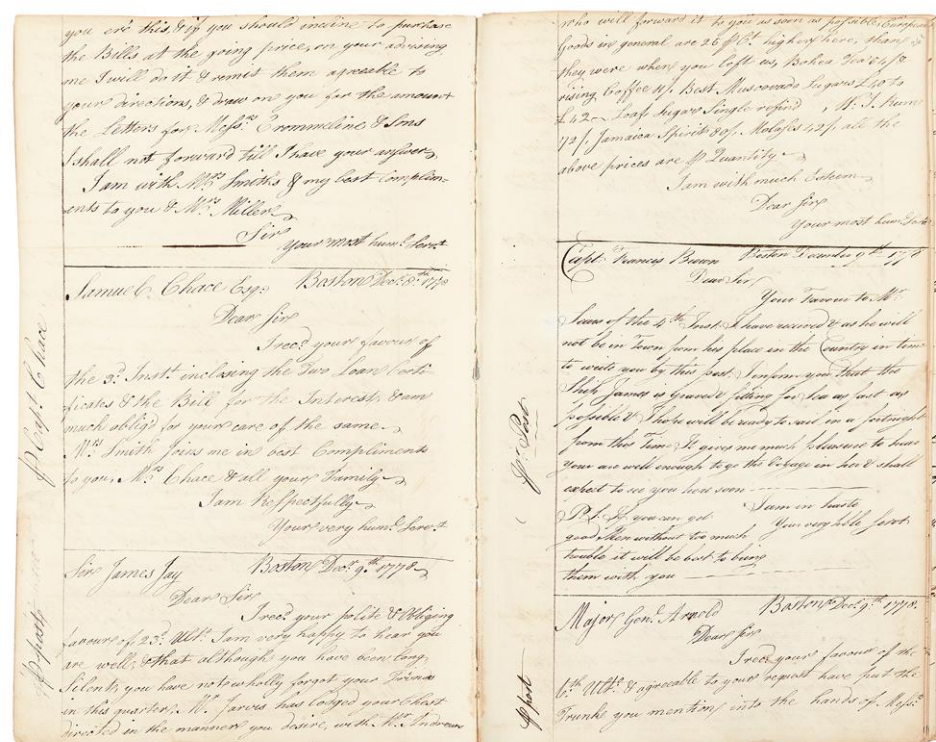 you ere this, & if you should incline to purchase
the Bills at the going price, on your advising
me I will do it & remit them agreeable to
your directions, & draw on you for the amount
the Letters for Messrs Crommeline & Sons
I shall not forward till I have your answer
I am with Mrs Smiths & my best Complim-
ents to you & Mrs Miller
Sir
Your most humle Servt
Samuel Chace Esqr Boston Decr 8th 1778
Dear Sir
I recd your favour of
the 3d Instt inclosing the Two Loan Certi-
ficates & the Bill for the Interest & am
much oblig'd for your care of the same
Mrs Smith joins me in best Compliments
to you, Mrs Chace & all your Family
I am Respectfully
Your very humle Servt
℔ Capt Chace
Sir James Jay Boston Decr 9th 1778
Dear Sir
I recd your polite & Obliging
favour of 23d Ulto I am very happy to hear you
are well, & that although you have been long
Silent, you have not wholly forgot your Friends
in this quarter, Mr Jarvis has lodged your Chest
directed in the manner you desire, with Mr Andrews
℔ post
who will forward it to you as soon as possible, European
Goods in general are 26 ℔ Ct higher here, than
they were when you left us, Bohea Tea
rising, Coffee Best Muscovado Sugars £40 to
£42 Loaf Sugar Single refind , W. I. Rum
72/. Jamaica Spirit 80/. Molases 42/. all the
above prices are ℔ Quantity
I am with much Esteem
Dear Sir
Your most humle Servt
Capt Frances Brown Boston December 9th 1778
Dear Sir
Your Favour to Mr
of the 4th Inst. I have received & as he will
not be in Town from his place in the Country in time
to write you by this post. I inform you that the
Ship James is graved & fitting for Sea as fast as
possible & I hope will be ready to sail in a fortnight
from this Time, It gives me much pleasure to hear
Your are well enough to go the Voyage in her & shall
expect to see you here soon
I am in haste
Your very hble Servt
P.S. If you can get
good Men without too much
trouble it will be best to bring
them with you
℔ Post
Major Genl Arnold Boston Decr 9th 1778.
Dear Sir
I recd your favour of the
6th Ulto & agreeable to your request have put the
Trunks you mention into the hands of Messrs
℔ post